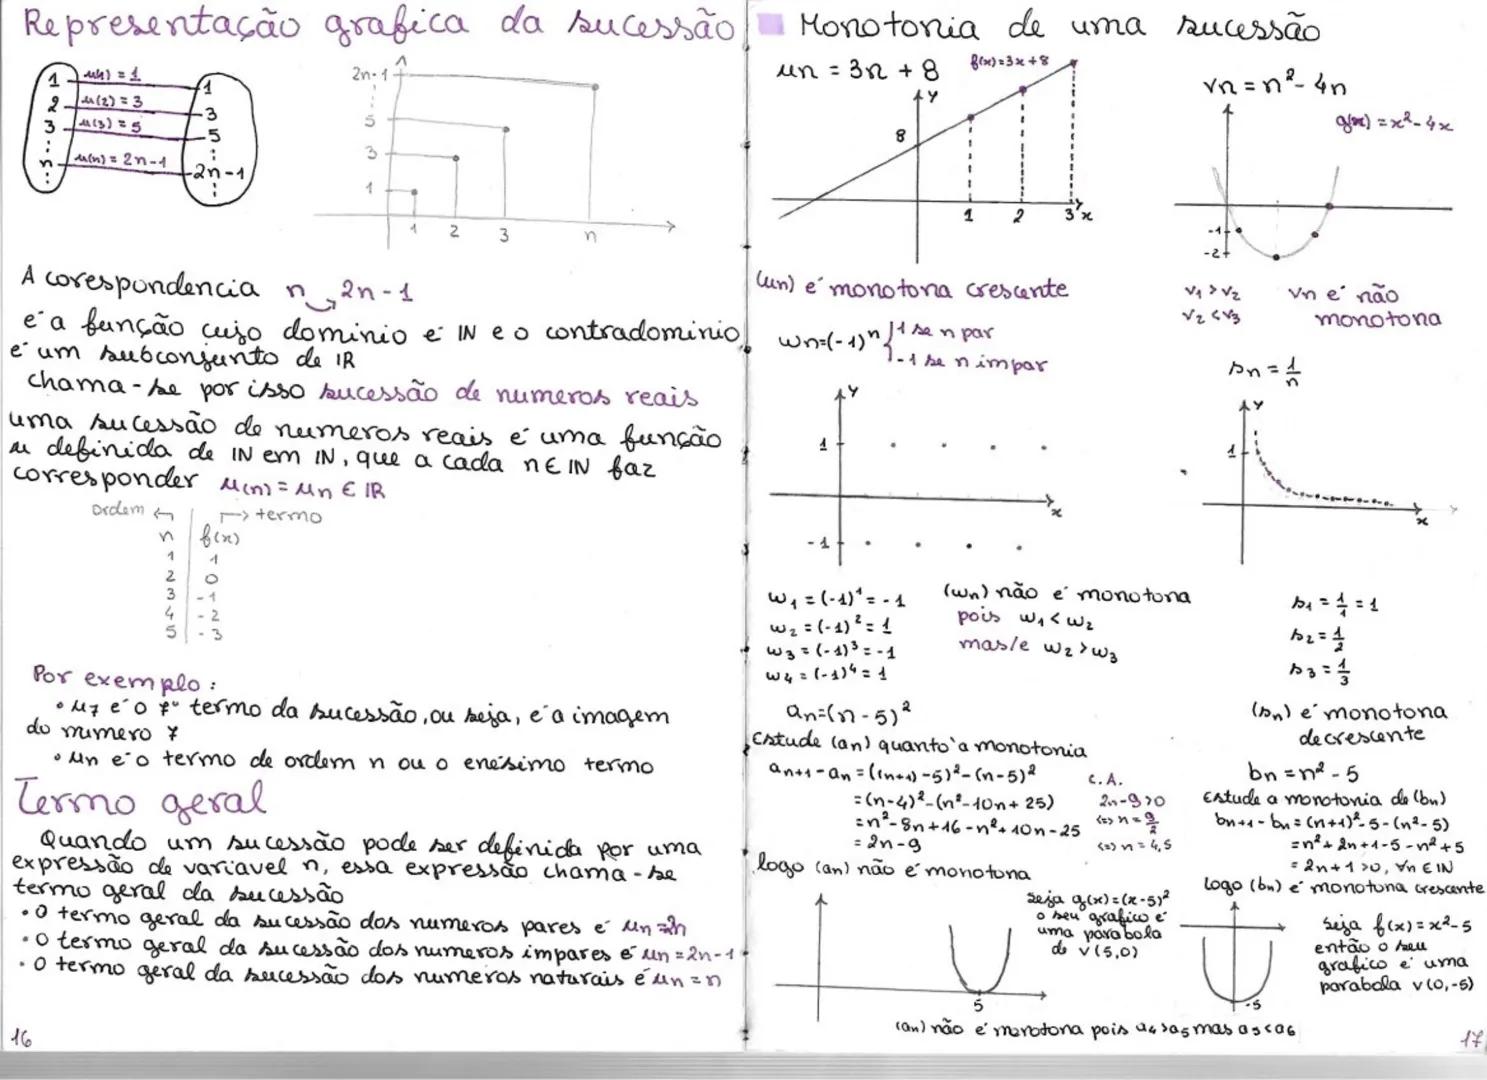 Representação grafica da sucessão
1 u(1) = 1 1
2 u(2) = 3 3
3 u(3) = 5 5
n u(n) = 2n-1 2n-1
2n-1
5
3
1
1 2 3 n
A corespondencia n 2n-1
é a função cujo dominio é IN e o contradominio
é um subconjunto de IR
chama-se por isso sucessão de numeros reais
uma sucessão de numeros reais é uma função
u definida de IN em IN, que a cada n∈IN faz
corresponder u(n) = un ∈ IR
ordem termo
n f(x)
1 1
2 0
3 -1
4 -2
5 -3
Por exemplo:
• u7 é o 7º termo da sucessão, ou seja, é a imagem
do numero 7
• un é o termo de ordem n ou o enésimo termo
Termo geral
Quando um sucessão pode ser definida por uma
expressão de variavel n, essa expressão chama-se
termo geral da sucessão
• O termo geral da sucessão dos numeros pares é un=2n
• O termo geral da sucessão dos numeros impares é un=2n-1
• O termo geral da sucessão dos numeros naturais é un=n
16
Monotonia de uma sucessão
un = 3n + 8
f(x)=3x+8
y
8
1 2 3 x
vn = n²-4n
g(x) = x²-4x
-1
-2
(un) é monotona crescente
v1 > v2
v2 < v3
vn é não
monotona
wn=(-1)ⁿ { 1 se n par
-1 se n impar
y
1
-1
x
sn = 1/n
y
1
x
w1 = (-1)¹ = -1
w2 = (-1)² = 1
w3 = (-1)³ = -1
w4 = (-1)⁴ = 1
(wn) não é monotona
pois w1 < w2
mas/e w2 > w3
s1 = 1/1 = 1
s2 = 1/2
s3 = 1/3
(sn) é monotona
decrescente
an=(n-5)²
Estude (an) quanto à monotonia
an+1-an = ((n+1)-5)²-(n-5)²
=(n-4)²-(n²-10n+25)
=n²-8n+16-n²+10n-25
= 2n-9
C.A.
2n-9>0
<=> n = 9/2
<=> n = 4,5
logo (an) não é monotona
seja g(x)=(x-5)²
o seu grafico é
uma parabola
de v(5,0)
5
(an) não é monotona pois a4>a5 mas a5<a6
bn = n²-5
Estude a monotonia de (bn)
bn+1-bn = (n+1)²-5-(n²-5)
=n²+2n+1-5-n²+5
= 2n+1 >0, ∀n∈IN
Logo (bn) é monotona crescente
seja f(x)=x²-5
então o seu
grafico é uma
parabola v(0,-5)
-5
17